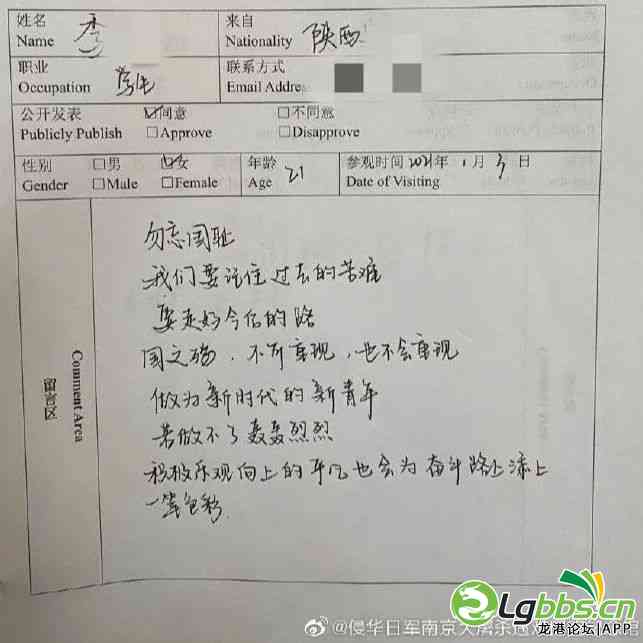 姓名 李 来自 陕西
Name Nationality
职业 学生 联系方式
Occupation Email Addre
公开发表 ☑同意 □不同意
Publicly Publish □Approve □Disapprove
性别 □男 ☑女 年龄 21 参观时间 2021年 1 月 5 日
Gender □Male □Female Age Date of Visiting
留言区
Comment Area
勿忘国耻
我们要记住过去的苦难
要走好今后的路
国之殇,不可重现,也不会重现
做为新时代的新青年
若做不了轰轰烈烈
积极乐观向上的年轻也会为奋斗路上添上
一笔色彩.
@侵华日军南京大屠杀遇难
Lgbbs.cn
龙港论坛|APP